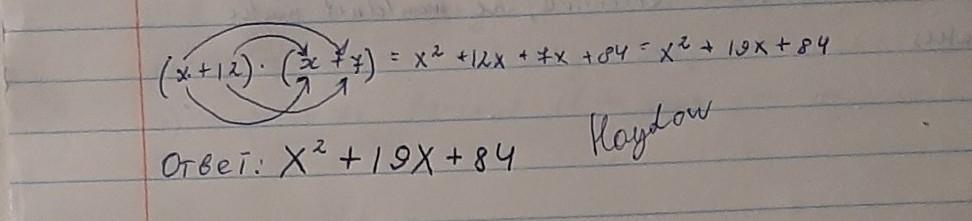 (x+12)·(x+7) = x² + 12x + 7x + 84 = x² + 19x + 84
Ответ: x² + 19x + 84
Haydow